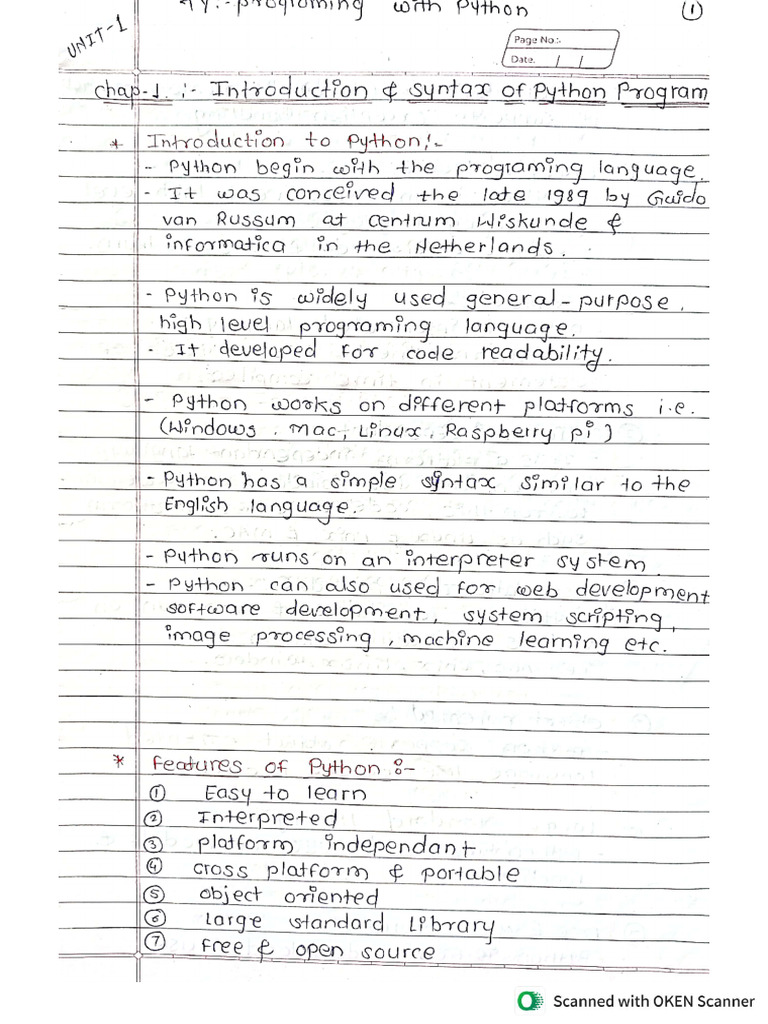 :- programing with Python
①
UNIT-1
Page No:-
Date. / /
chap-1. :- Introduction & Syntax of Python Program
* Introduction to Python:-
- Python begin with the programing language.
- It was conceived the late 1989 by Guido
van Russum at centrum Wiskunde &
informatica in the Netherlands.
- Python is widely used general-purpose,
high level programing language.
- It developed for code readability.
- Python works on different platforms i.e.
(Windows, Mac, Linux, Raspberry pi)
- Python has a simple syntax similar to the
English language.
- Python runs on an interpreter system
- Python can also used for web development
software development, system scripting,
image processing, machine learning etc.
* Features of Python :-
① Easy to learn
② Interpreted
③ platform independant
④ cross platform & portable
⑤ object oriented
⑥ large standard Library
⑦ free & open source
Scanned with OKEN Scanner